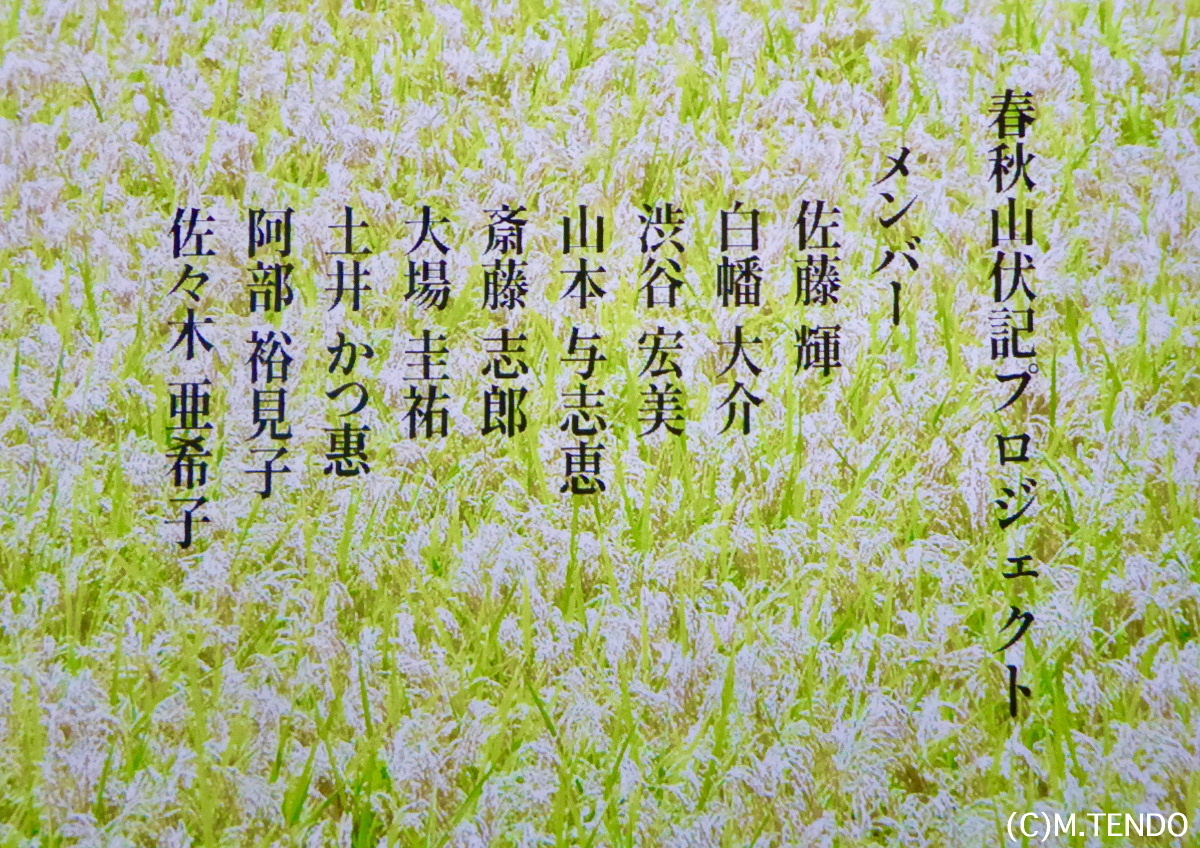 春秋山伏記プロジェクト
メンバー
佐藤 輝
白幡 大介
渋谷 宏美
山本 与志恵
斎藤 志郎
大場 圭祐
土井 かつ惠
阿部 裕見子
佐々木 亜希子
(C)M.TENDO